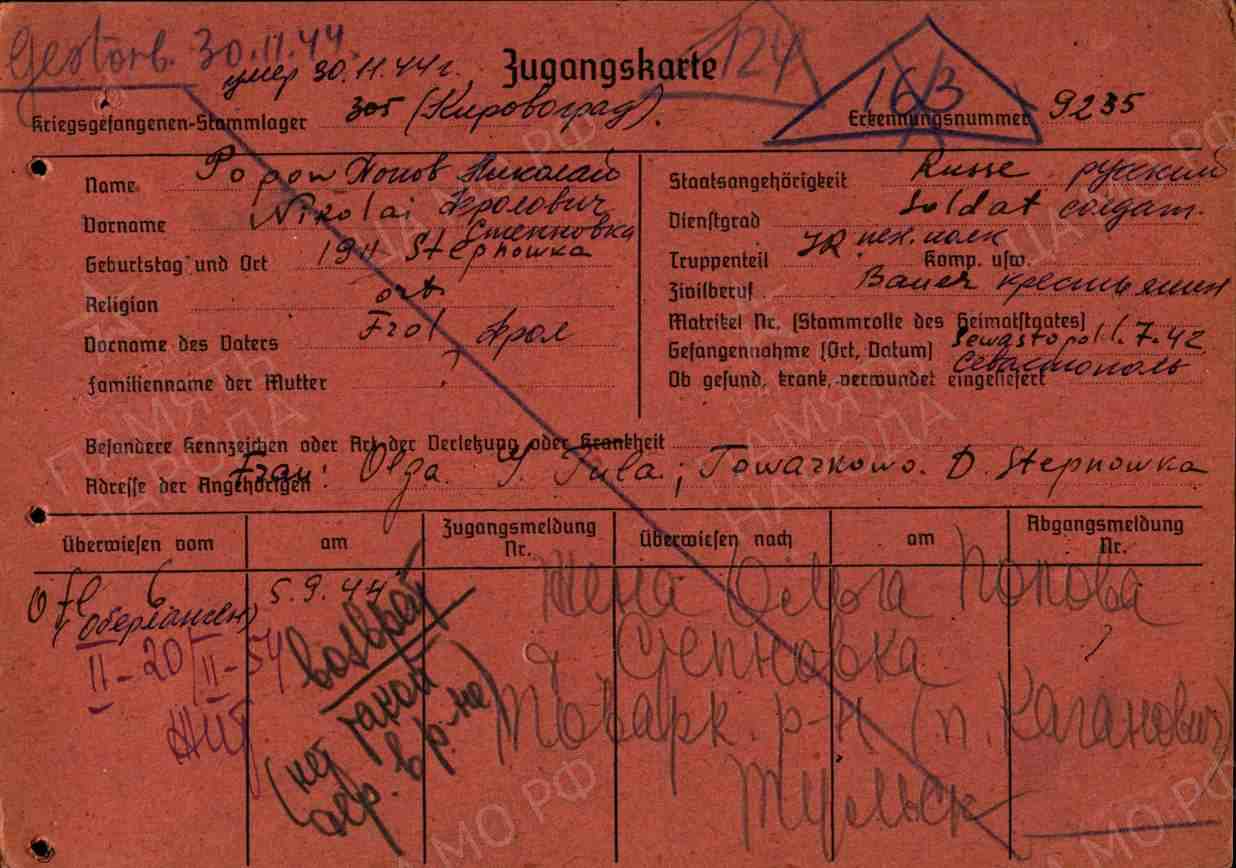 Gestorb. 30.11.44.
умер 30.11.44 г.
Zugangskarte
124
163
Kriegsgefangenen-Stammlager 305 (Кировоград).
Erkennungsnummer 9235
Name Popow Попов Николай
Vorname Nikolai Фролович
Степновка
Geburtstag und Ort 1911 Stepnowka
Religion ort
Vorname des Vaters Frol Фрол
Familienname der Mutter
Staatsangehörigkeit Russe русский
Dienstgrad Soldat солдат.
Truppenteil JR пех. полк Komp. usw.
Zivilberuf Bauer крестьянин
Matrikel Nr. (Stammrolle des Heimatstaates)
Gefangennahme (Ort, Datum) Sewastopol 1.7.42
Севастополь
Ob gesund, krank, verwundet eingeliefert
Besondere Kennzeichen oder Art der Verletzung oder Krankheit
Frau: Olga. Tula; Towarkowo. D. Stepnowka
Adresse der Angehörigen
Überwiesen vom
am
Zugangsmeldung Nr.
Überwiesen nach
am
Abgangsmeldung Nr.
Ofl 6
5.9.44
(Оберланген)
II-20/II-54
возврат
(нет такой
в р-не)
Жена Ольга Попова
д Степновка
Товарк. р-н (п. Каганович)
Тульск
ПАМЯТЬ НАРОДА
ЦАМО РФ